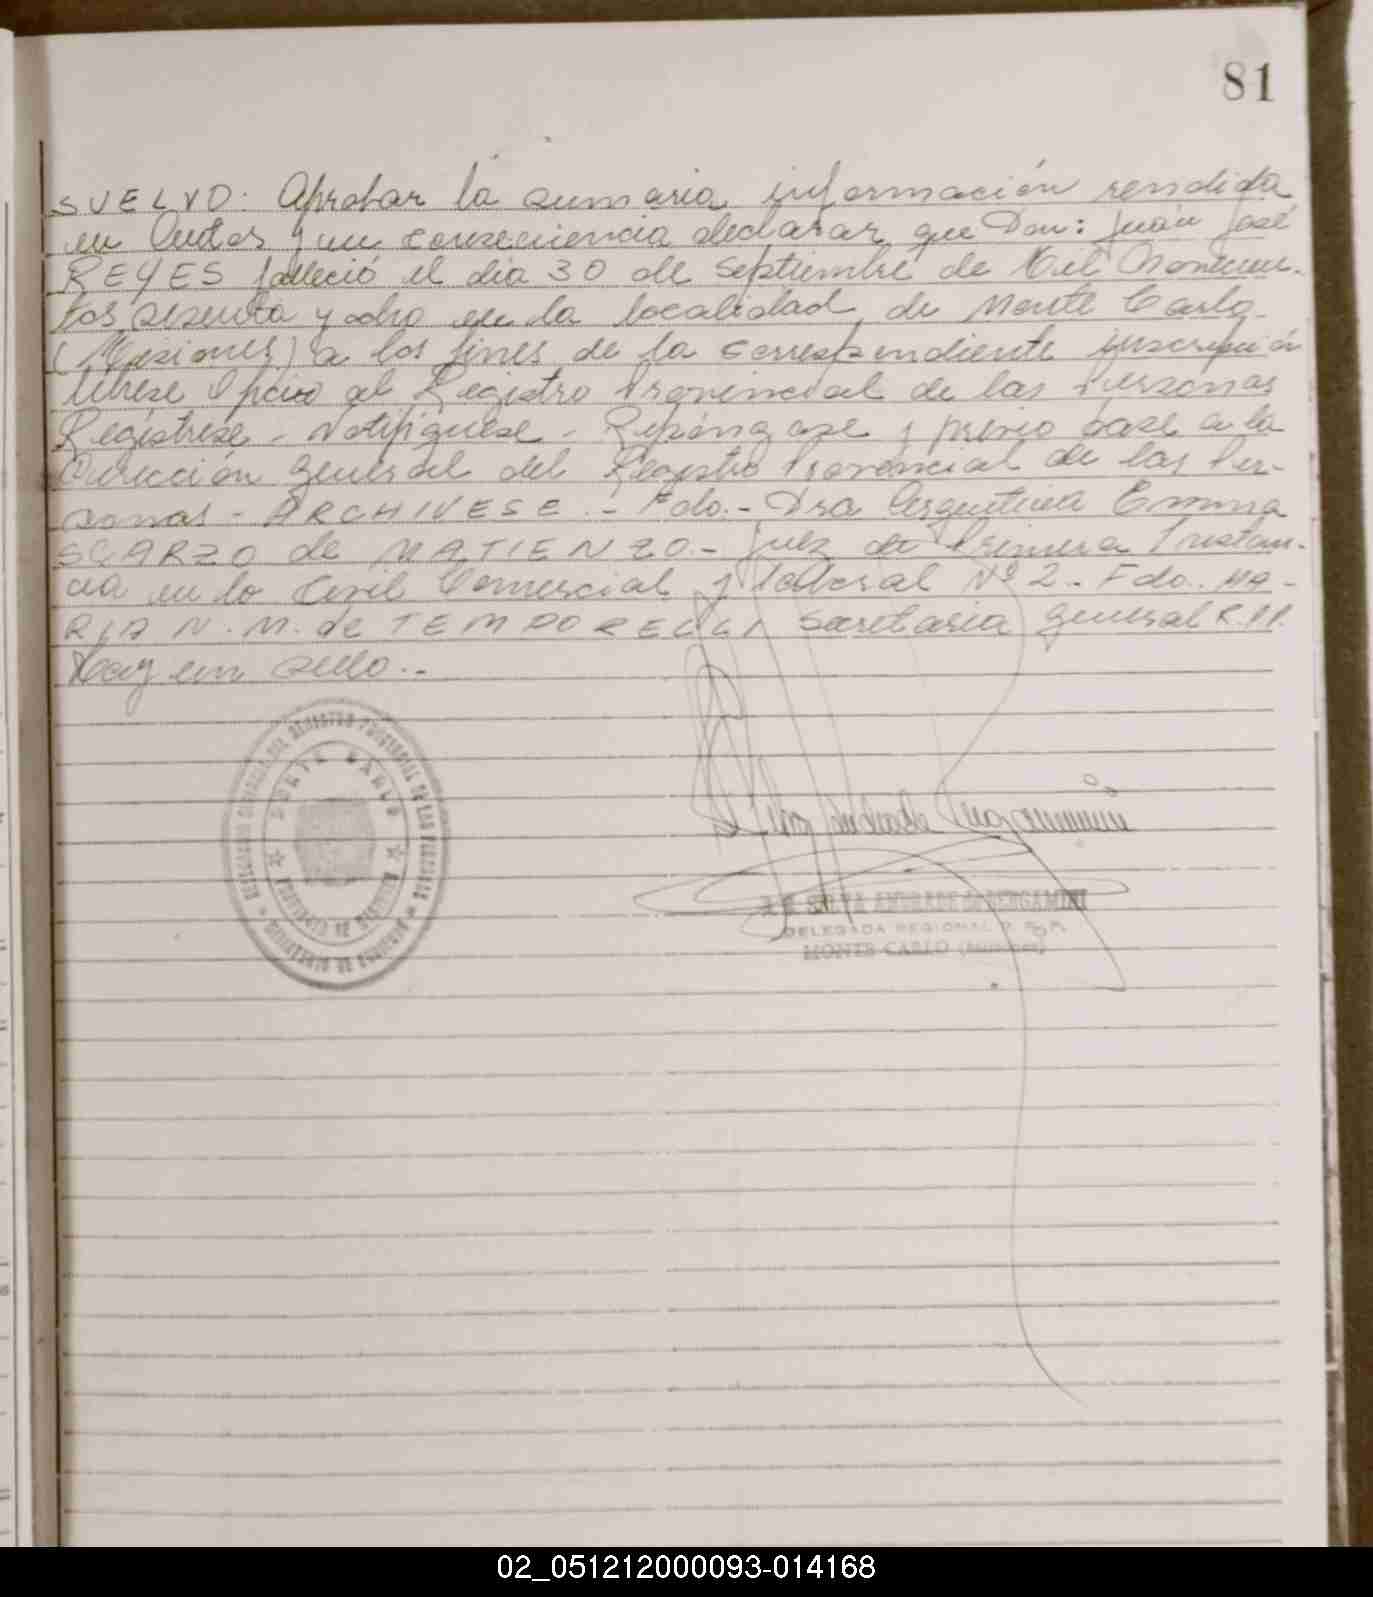 81
SUELVO: Aprobar la sumaria información rendida
en Autos y en consecuencia declarar que Don: Juan José
REYES falleció el dia 30 de Septiembre de Mil Novecien-
tos sesenta y ocho en la localidad de Monte Carlo
(Misiones) a los fines de la correspondiente inscripción
librese Oficio al Registro Provincial de las Personas
Registrese - Notifiquese - Repóngase y previo pase a la
Dirección General del Registro Provincial de las Per-
sonas - ARCHIVESE.- Fdo.- Dra Argentina Emma
SCARZO de MATIENZO.- Juez de Primera Instan-
cia en lo Civil Comercial y Laboral Nº 2.- Fdo. MA-
RIA N. M. de TEMPORELLI Secretaria General R.P.P.
Hay un sello.-
DEL REGISTRO PROVINCIAL DE LAS PERSONAS
MONTE CARLO
PROVINCIA DE MISIONES
SILVA ANDRADE de BERGAMINI
DELEGADA REGIONAL R. P. P.
MONTE CARLO (Misiones)
02_051212000093-014168